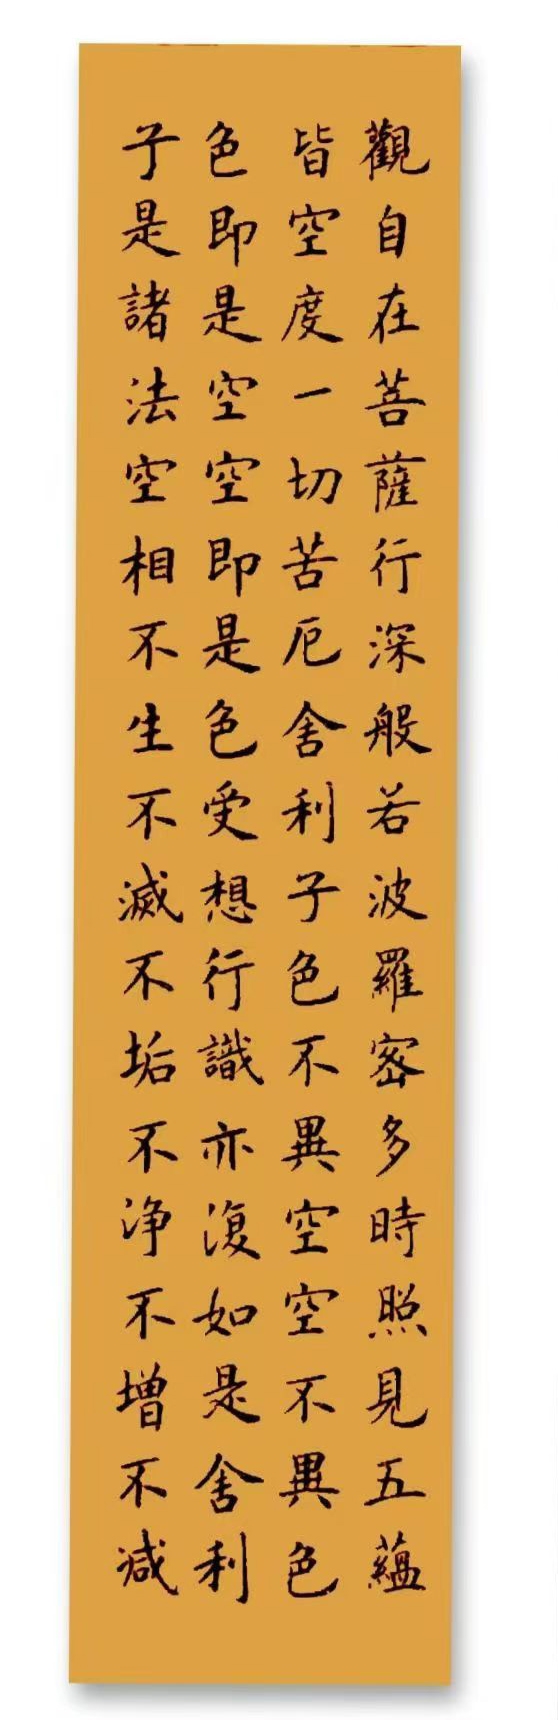 觀自在菩薩行深般若波羅密多時照見五蘊
皆空度一切苦厄舍利子色不異空空不異色
色即是空空即是色受想行識亦復如是舍利
子是諸法空相不生不滅不垢不净不增不減